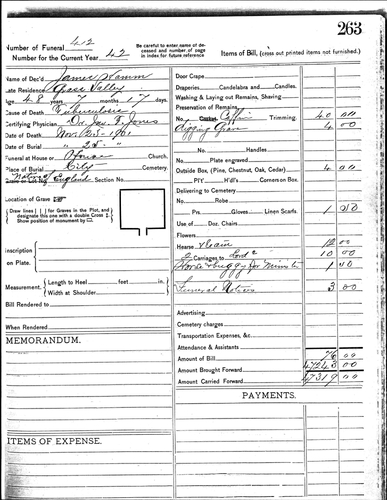 263
Number of Funeral 412
Number for the Current Year 42
Be careful to enter name of deceased and number of page in index for future reference
Items of Bill, (cross out printed items not furnished.)
Name of Dec'd James Hamm
Late Residence Grass Valley
Age 48 years months 17 days
Cause of Death Tuberculosis
Certifying Physician Dr. Jas. T. Jones
Date of Death Nov. 25 - 1901
Date of Burial " 28 "
Funeral at House or House Church.
Place of Burial City Cemetery.
Native of England Section No.
Location of Grave
Draw lines ( | ) for Graves in the Plot, and designate this one with a double Cross
Show position of monument by
Inscription on Plate.
Measurement. Length to Heel feet in.
Width at Shoulder
Bill Rendered to
When Rendered
MEMORANDUM.
ITEMS OF EXPENSE.
Door Crape
Draperies Candelabra and Candles.
Washing & Laying out Remains, Shaving
Preservation of Remains
No. Casket Coffin Trimming. 40 00
Digging Grave 4 00
No. Handles
Plate engraved
Outside Box, (Pine, Chestnut, Oak, Cedar) 4 00
Delivering to Cemetery
No. Robe
Prs. Gloves. Linen Scarfs. 1 00
Use of Doz. Chairs
Flowers
Hearse 12 00
2 Carriages to 10 00
Horse & buggy for Minister 1 00
Funeral Notices 3 00
Advertising
Cemetery charges
Transportation Expenses, &c.
Attendance & Assistants
Amount of Bill 76 00
Amount Brought Forward 47243 00
Amount Carried Forward 47319 00
PAYMENTS.